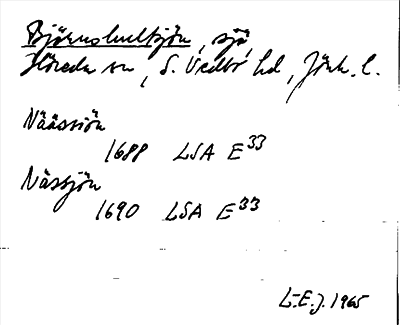 Björnshultsjön, sjö,
Höreda sn, S. Vedbo hd, Jönk. l.
Näässiön
1688 LSA E³³
Nässjön
1690 LSA E³³
L-E.J. 1965